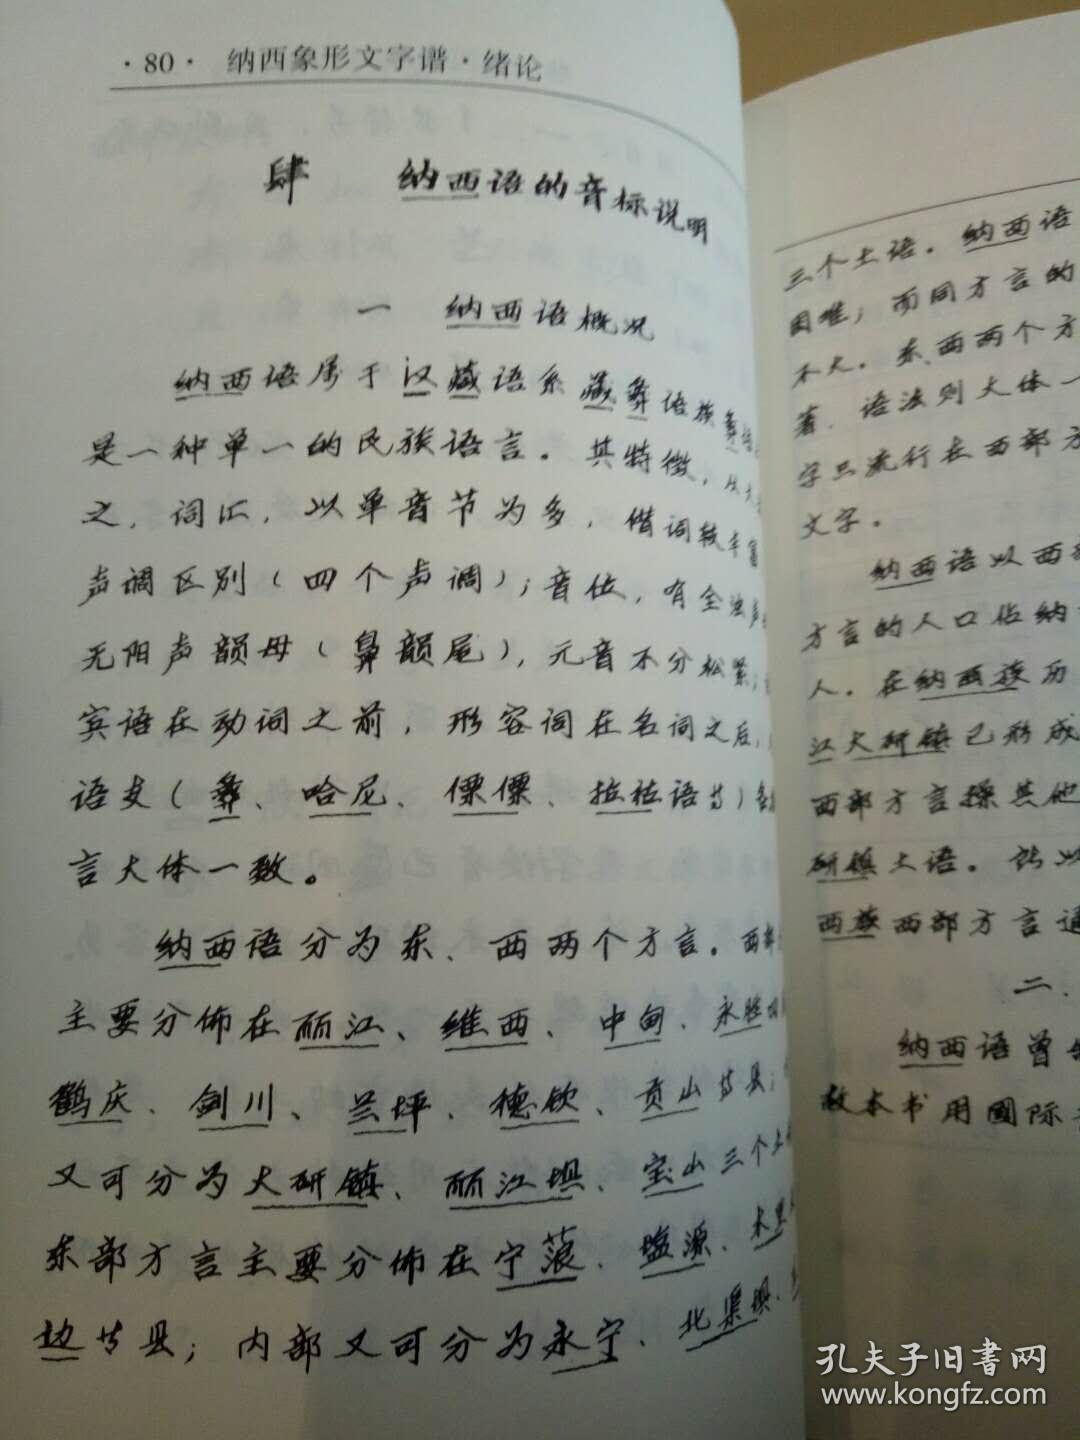 ·80· 纳西象形文字谱·绪论
肆 纳西语的音标说明
一 纳西语概况
纳西语属于汉藏语系藏彝语族彝语
是一种单一的民族语言。其特徵，从大
之，词汇，以单音节为多，借词较丰富
声调区别（四个声调）；音位，有全浊声
无阳声韻母（鼻韻尾），元音不分松紧；
宾语在动词之前，形容词在名词之后，
语支（彝、哈尼、傈僳、拉祜语等）各
言大体一致。
纳西语分为东、西两个方言。西部
主要分佈在丽江、维西、中甸、永胜
鹤庆、剑川、兰坪、德钦、贡山等县；
又可分为大研镇、丽江坝、宝山三个土
东部方言主要分佈在宁蒗、塩源、木里
边等县；内部又可分为永宁、北渠坝、
三个土语。纳西语
困难，而同方言的
不大。东、西两个方
著，语法则大体一
字只流行在西部方
文字。
纳西语以西部
方言的人口佔纳
人。在纳西族历
江大研镇已形成
西部方言操其他
研镇土语。所以
西族西部方言通
二、
纳西语曾
故本书用國际
孔夫子旧書网
www.kongfz.com